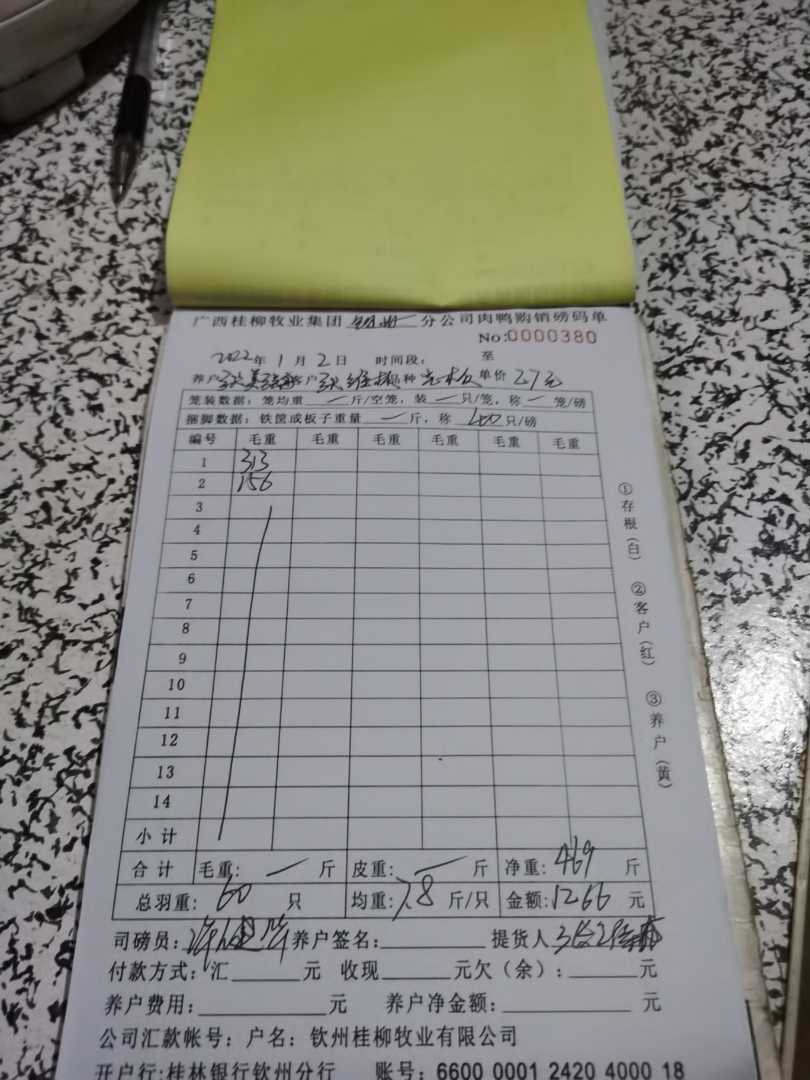 广西桂柳牧业集团 钦州 分公司肉鸭购销磅码单
No:0000380
2022年 1 月 2 日 时间段: 至
养户 客户 品种 单价 2.7元
笼装数据: 笼均重 一 斤/空笼, 装 一 只/笼, 称 一 笼/磅
捆脚数据: 铁筐或板子重量 一 斤, 称 只/磅
编号 毛重 毛重 毛重 毛重 毛重 毛重
1 313
2 156
3
4
5
6
7
8
9
10
11
12
13
14
小计
合计 毛重: 一 斤 皮重: 一 斤 净重: 469 斤
总羽重: 60 只 均重: 7.8 斤/只 金额: 1266 元
司磅员: 养户签名: 提货人
付款方式: 汇 元 收现 元欠(余): 元
养户费用: 元 养户净金额: 元
公司汇款帐号: 户名: 钦州桂柳牧业有限公司
开户行:桂林银行钦州分行 账号: 6600 0001 2420 4000 18
①存根(白) ②客户(红) ③养户(黄)